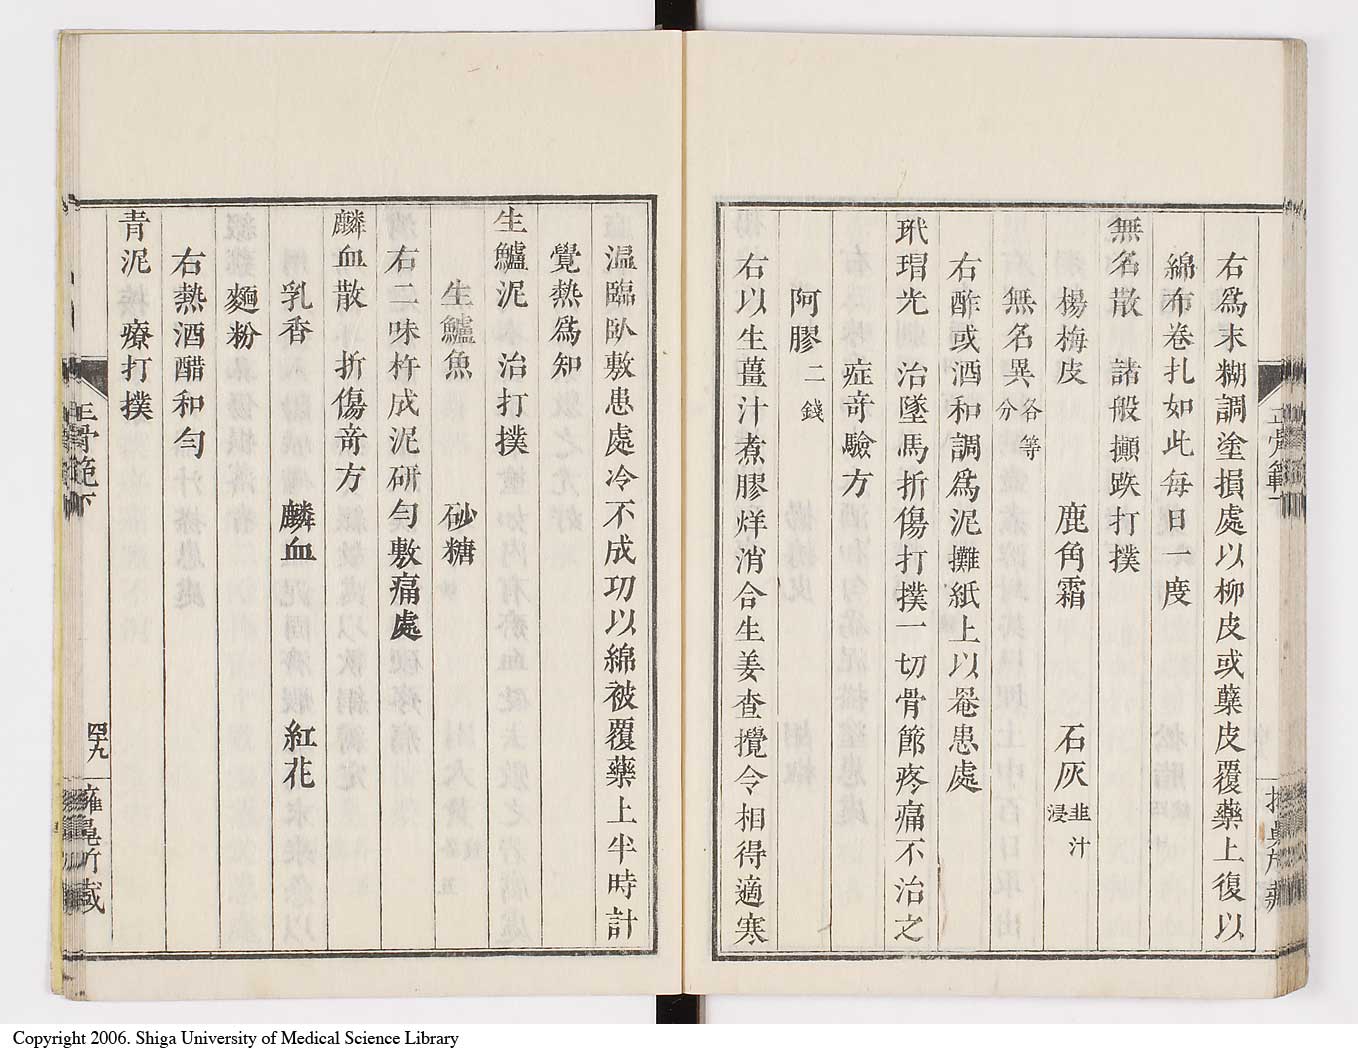 右爲末糊調塗損處以柳皮或蘗皮覆藥上復以
綿布卷扎如此每日一度
無名散 諸般攧跌打撲
楊梅皮 鹿角霜 石灰 韭汁浸
無名異 各等分
右酢或酒和調爲泥攤紙上以罨患處
玳瑁光 治墜馬折傷打撲一切骨節疼痛不治之
症竒驗方
阿膠 二錢
右以生薑汁煮膠烊消合生姜查攪令相得適寒
温臨臥敷患處冷不成功以綿被覆藥上半時計
覺熱爲知
生鱸泥 治打撲
生鱸魚 砂糖
右二味杵成泥研勻敷痛處
麟血散 折傷竒方
乳香 麟血 紅花
麵粉
右熱酒醋和勻
青泥 療打撲
正骨範下
四十九
Copyright 2006. Shiga University of Medical Science Library